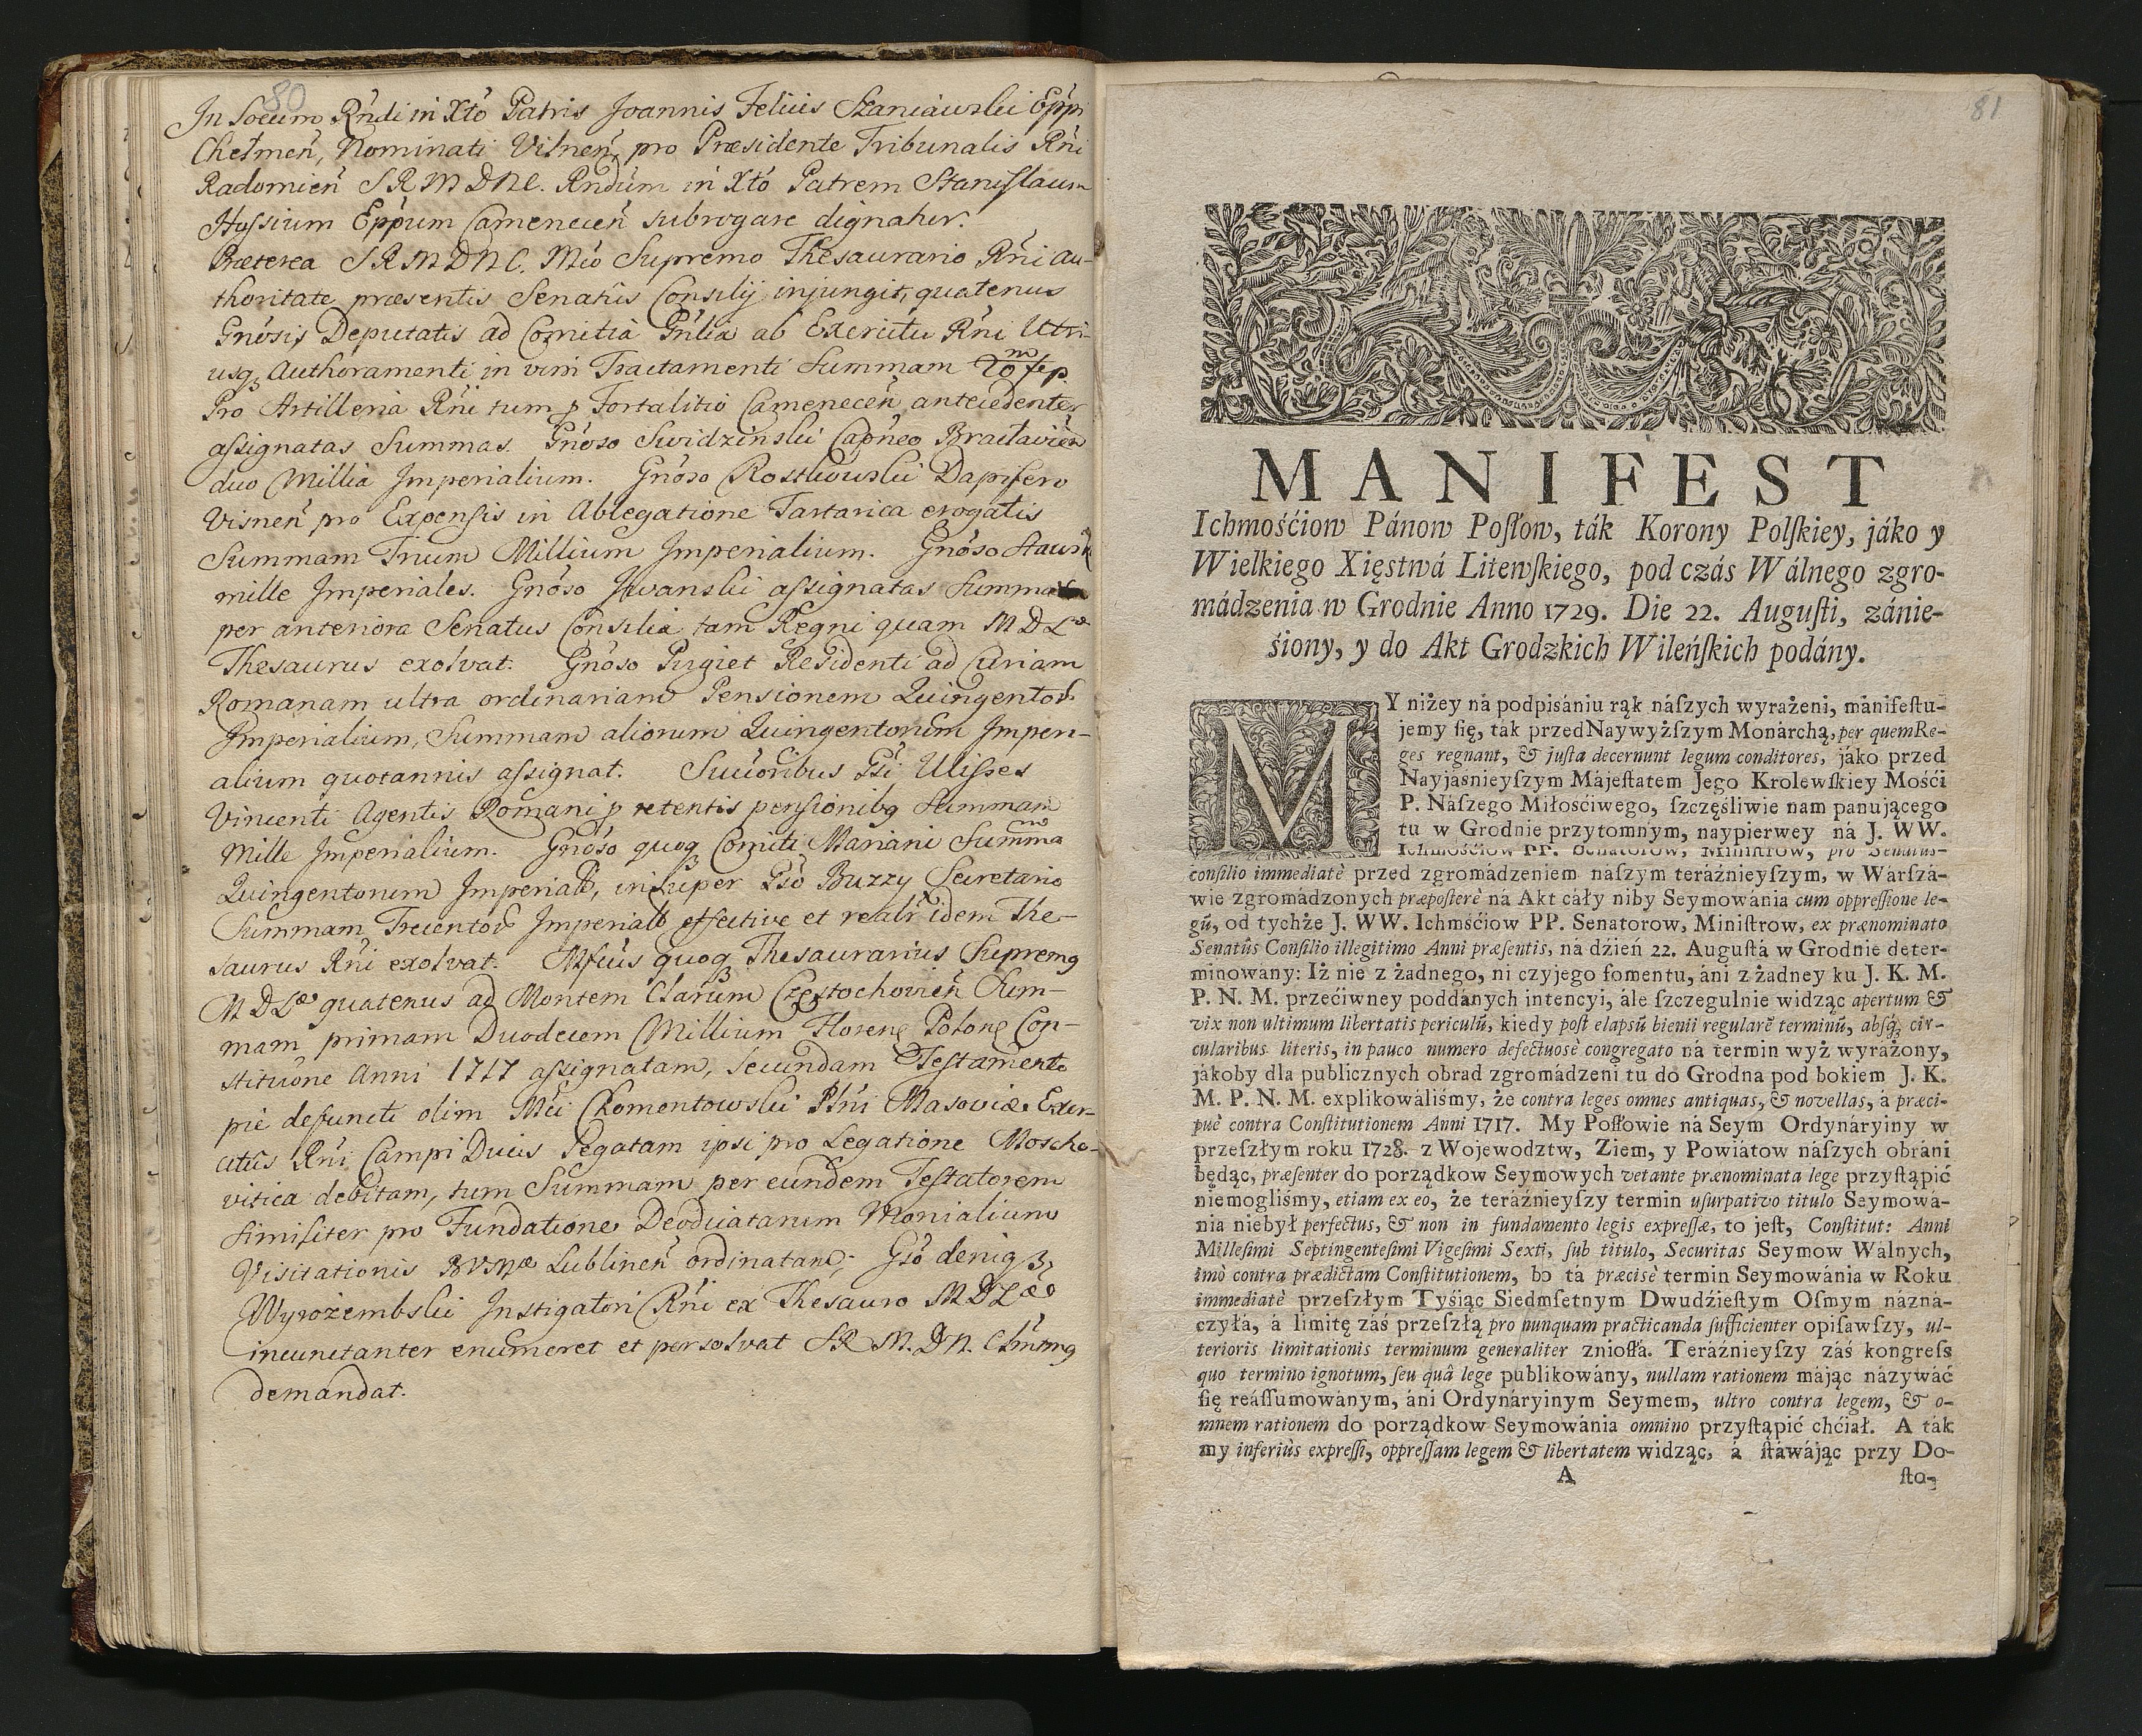 80
In Locum Rńdi in Xtó Patris Joannis Felicis Szaniawski Eppi
Chełmeń, Nominati Vilneń, pro Præsidente Tribunalis Rńi
Radomień S R M D N C. Rńdum in Xtó Patrem Stanislaum
Hosium Eppum Cameneceń subrogare dignatur.
Præterea S R M D N C. Mfco Supremo Thesaurario Rńi au-
thoritate præsentis Senatûs Consilij injungit, quatenus
Gnósis Deputatis ad Comitia Gńlia ab Exercitu Rńi Utri-
usq; Authoramenti in vim Tractamenti Summam
Pro Artilleria Rńi tum p Fortalitio Cameneceń antecedenter
assignatas Summas. Gnóso Swidzinski Capńeo Bracłavień
duo Millia Imperialium. Gnóso Rostkowski Dapifero
Visneń pro Expensis in Ablegatione Tartarica erogatis
Summam Trium Millium Imperialium. Gnóso
mille Imperiales. Gnóso Iwanski assignatas Summas
per anteriora Senatus Consilia tam Regni quam M D Læ
Thesaurus exolvat. Gnóso Pugiet Residenti ad Curiam
Romanam ultra ordinariam Pensionem Quingentor
Imperialium, Summam aliorum Quingentorum Imperi-
alium quotannis assignat. Succoribus Gsi Ulisses
Vincenti Agentis Romani p retentis pensionibq Summam
Mille Imperialium. Gnóso quoq Comiti Mariani Summã
Quingentorum Imperial, insuper Gsó Buzzy Secretario
Summam Trecentor Imperial effective et realr idem The-
saurus Rńi exolvat. Mfcus quoq Thesaurarius Supremq
M D Læ quatenus ad Montem Clarum Częstochovień Sum-
mam primam Duodecem Millium Florenq Polonq Con-
stitutióne Anni 1717 assignatam, secundam Testamento
pie defuncti olim Mfci Chomentowski Płńi Masoviæ Exer-
citûs Rńi Campi Ducis Legatam ipsi pro Legatione Moscho-
vitica debitam, tum Summam per eundem Testatorem
similiter pro Fundatione Deodicatarum Monialium
Visitationis BVMæ Lublineń ordinatam; Gsó deniq3
Wyrożembski Instigatori Rńi ex Thesauro M D Læ
incunctanter enumeret et persolvat S R M. D N. Clmmq
demandat.
81
MANIFEST
Ichmośćiow Pánow Posłow, ták Korony Polſkiey, jáko y
Wielkiego Xięstwá Litewſkiego, pod czás Wálnego zgro-
mádzenia w Grodnie Anno 1729. Die 22. Auguſti, zánie-
śiony, y do Akt Grodzkich Wileńſkich podány.
MY niżey ná podpisániu rąk náſzych wyrażeni, mánifeſtu-
jemy ſię, ták przed Naywyżſzym Monárchą, per quem Re-
ges regnant, & juſta decernunt legum conditores, jáko przed
Nayjáśnieyſzym Májeſtatem Jego Krolewſkiey Mośći
P. Náſzego Miłośćiwego, ſzczęśliwie nam panującego
tu w Grodnie przytomnym, naypierwey ná J. WW.
Ichmośćiow PP. Senatorow, Miniſtrow, pro Senatus-
conſilio immediatè przed zgromádzeniem náſzym teráźnieyſzym, w Wárſzá-
wie zgromádzonych præpoſterè ná Akt cáły niby Seymowánia cum oppreſſione le-
gū, od tychże J. WW. Ichmśćiow PP. Senatorow, Miniſtrow, ex prænominato
Senatûs Conſilio illegitimo Anni præſentis, ná dźień 22. Auguſtá w Grodnie deter-
minowány: Iż nie z żadnego, ni czyjego fomentu, áni z żadney ku J. K. M.
P. N. M. przećiwney poddánych intencyi, ále ſzczegulnie widząc apertum &
vix non ultimum libertatis periculū, kiedy poſt elapsū bienii regularē terminū, abſq; cir-
cularibus literis, in pauco numero defectuosè congregato ná termin wyż wyrażony,
jákoby dla publicznych obrad zgromádzeni tu do Grodna pod bokiem J. K.
M. P. N. M. explikowáliśmy, że contra leges omnes antiquas, & novellas, á præci-
puè contra Conſtitutionem Anni 1717. My Poſłowie ná Seym Ordynáryiny w
przeſzłym roku 1728. z Wojewodztw, Ziem, y Powiátow náſzych obráni
będąc, præſenter do porządkow Seymowych vetante prænominata lege przyſtąpić
niemogliśmy, etiam ex eo, że teráźnieyſzy termin uſurpativo titulo Seymowá-
nia niebył perfectus, & non in fundamento legis expreſſæ, to jeſt, Conſtitut: Anni
Milleſimi Septingenteſimi Vigeſimi Sexti, ſub titulo, Securitas Seymow Wálnych,
imò contra prædictam Conſtitutionem, bo tá præcisè termin Seymowánia w Roku
immediatè przeſzłym Tyśiąc Siedmſetnym Dwudźieſtym Oſmym názná-
czyłá, á limitę záś przeſzłą pro nunquam practicanda ſufficienter opiſawſzy, ul-
terioris limitationis terminum generaliter zniosłá. Teráźnieyſzy záś kongreſs
quo termino ignotum, ſeu quâ lege publikowány, nullam rationem májąc názywáć
ſię reáſſumowánym, áni Ordynáryinym Seymem, ultro contra legem, & o-
mnem rationem do porządkow Seymowánia omnino przyſtąpić chćiał. A ták
my inferiùs expreſſi, oppreſſam legem & libertatem widząc, á ſtáwájąc przy Do-
A
ſto-